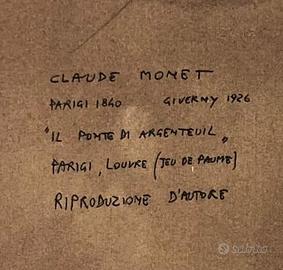 CLAUDE MONET
PARIGI 1840 GIVERNY 1926
"IL PONTE DI ARGENTEUIL"
PARIGI, LOUVRE (JEU DE PAUME)
RIPRODUZIONE D'AUTORE
subito